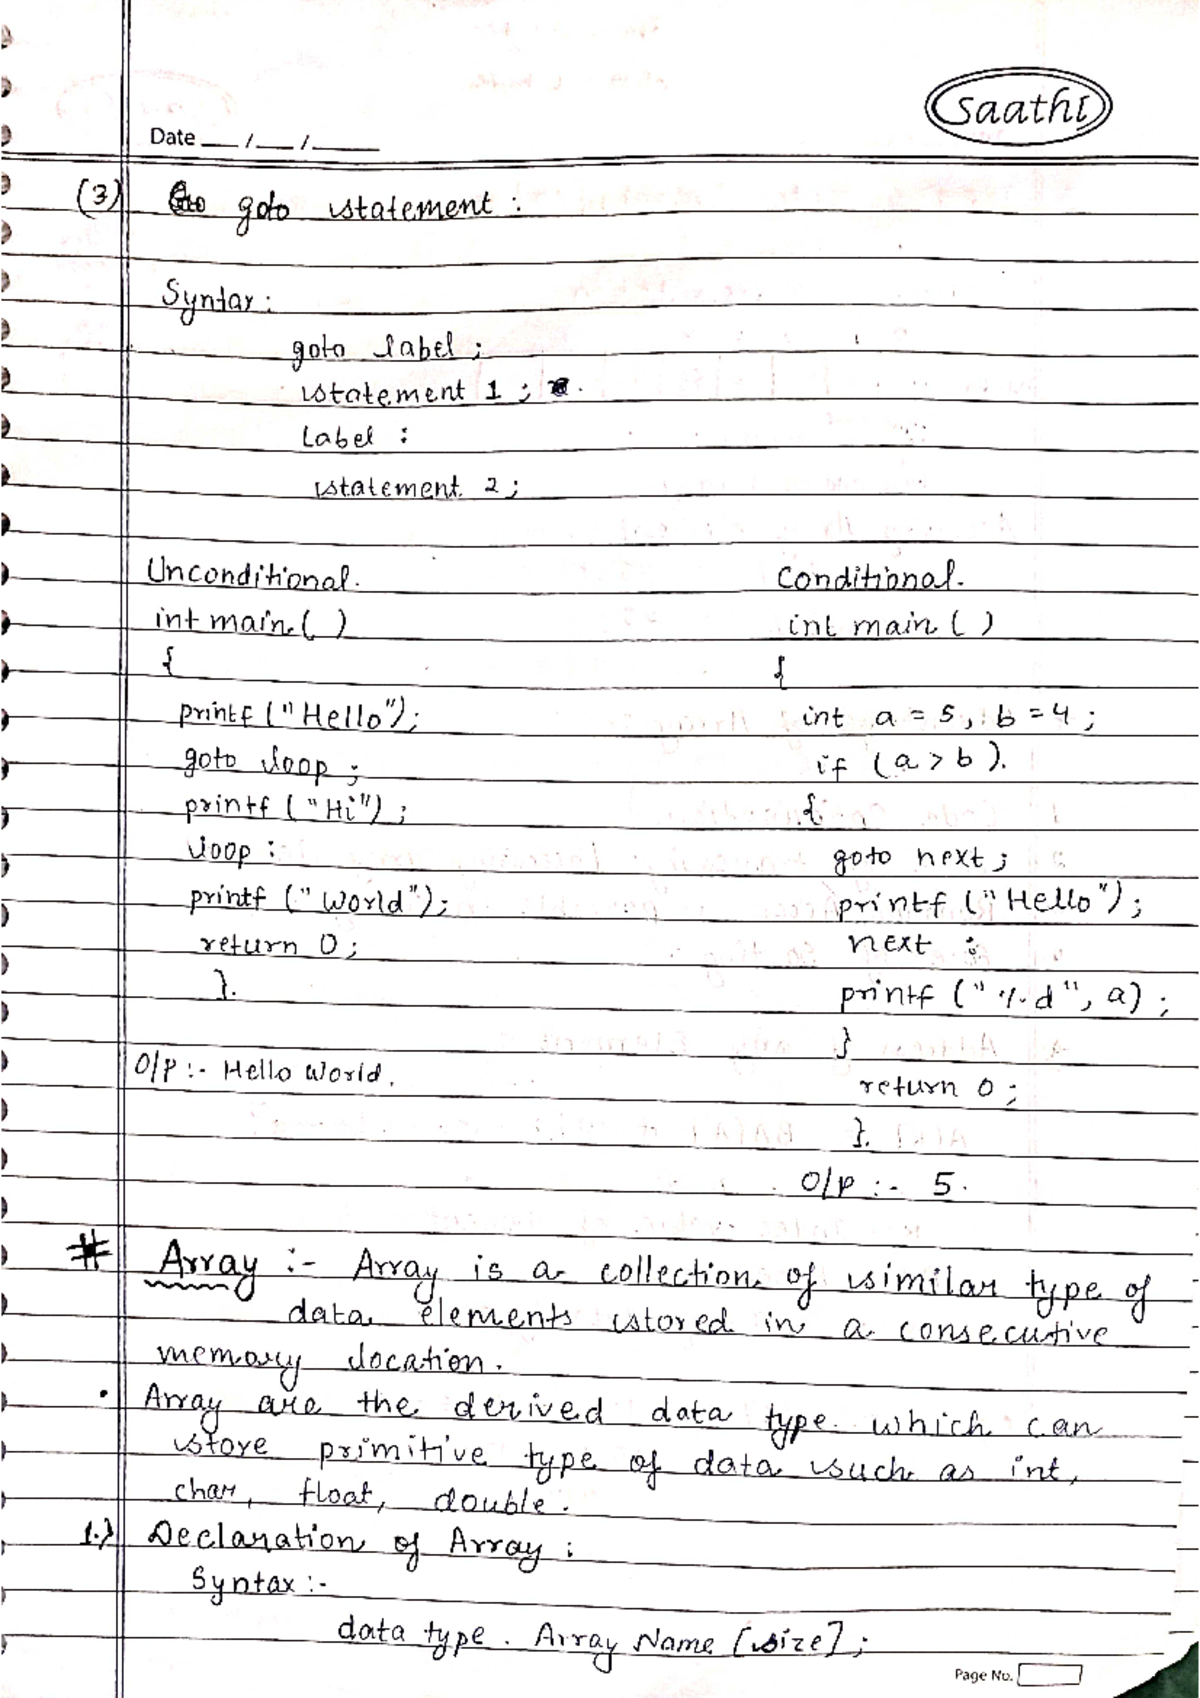 Saathi
Date __/__/____
(3) goto statement :
Syntax :
goto label ;
statement 1 ;
Label :
statement 2 ;
Unconditional.
int main ( )
{
printf ("Hello");
goto loop ;
printf ("Hi") ;
loop :
printf ("World");
return 0 ;
}.
O/P :- Hello World.
Conditional.
int main ( )
{
int a = 5, b = 4 ;
if (a > b ).
{
goto next ;
printf ("Hello");
next :
printf ("%d", a) ;
}
return 0 ;
}.
O/P :- 5.
# Array :- Array is a collection of similar type of
data elements stored in a consecutive
memory location.
• Array are the derived data type which can
store primitive type of data such as int,
char, float, double.
1.) Declaration of Array :
Syntax :-
data type. Array Name [size] ;
Page No.